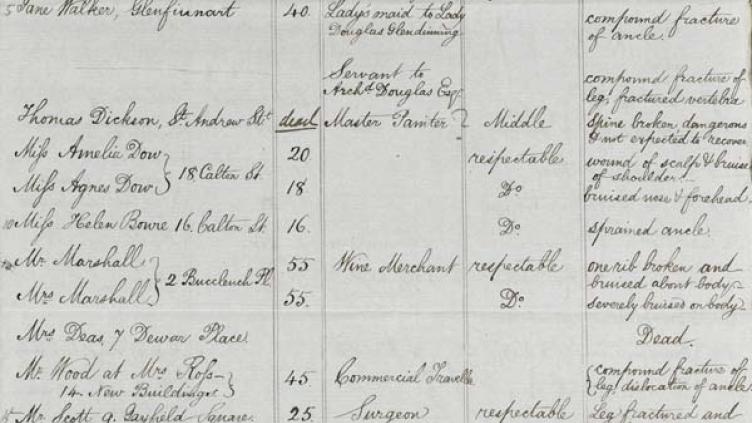 5 Jane Walker, Glenfinnart 40. Lady's maid to Lady compound fracture
Douglas Glendinning of ancle.
Servant to compound fracture of
Archd. Douglas Esq. leg, fractured vertebra
Thomas Dickson, St. Andrew St. dead Master Painter } Middle Spine broken dangerous
& not expected to recover
Miss Amelia Dow } 20 respectable wound of scalp & bruise
18 Calton St. of shoulder
Miss Agnes Dow 18 Do. bruised nose & forehead.
10 Miss Helen Bowre 16. Calton St. 16. Do. sprained ancle.
Mr. Marshall } 55 Wine Merchant respectable one rib broken and
2 Buccleuch Pl. bruised about body
Mrs Marshall 55. Do. severely bruised on body
Mrs Deas, 7 Dewar Place. Dead.
Mr. Wood at Mrs Ross } 45 Commercial Travelle { compound fracture of
14 New Buildings leg, dislocation of ancle
15 Mr. Scott 9. Garfield Square. 25 Surgeon respectable Leg fractured and